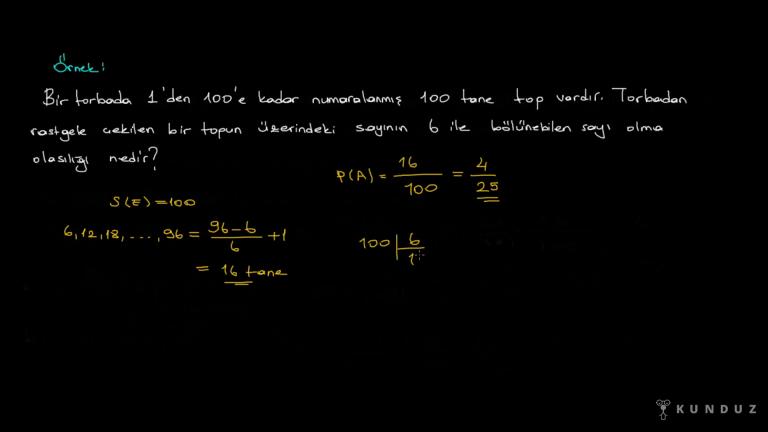 Örnek:
Bir torbada 1'den 100'e kadar numaralanmış 100 tane top vardır. Torbadan
rastgele çekilen bir topun üzerindeki sayının 6 ile bölünebilen sayı olma
olasılığı nedir?
P(A) = 16/100 = 4/25
S(E) = 100
6, 12, 18, ..., 96 = (96-6)/6 + 1
= 16 tane
100 | 6
1
KUNDUZ